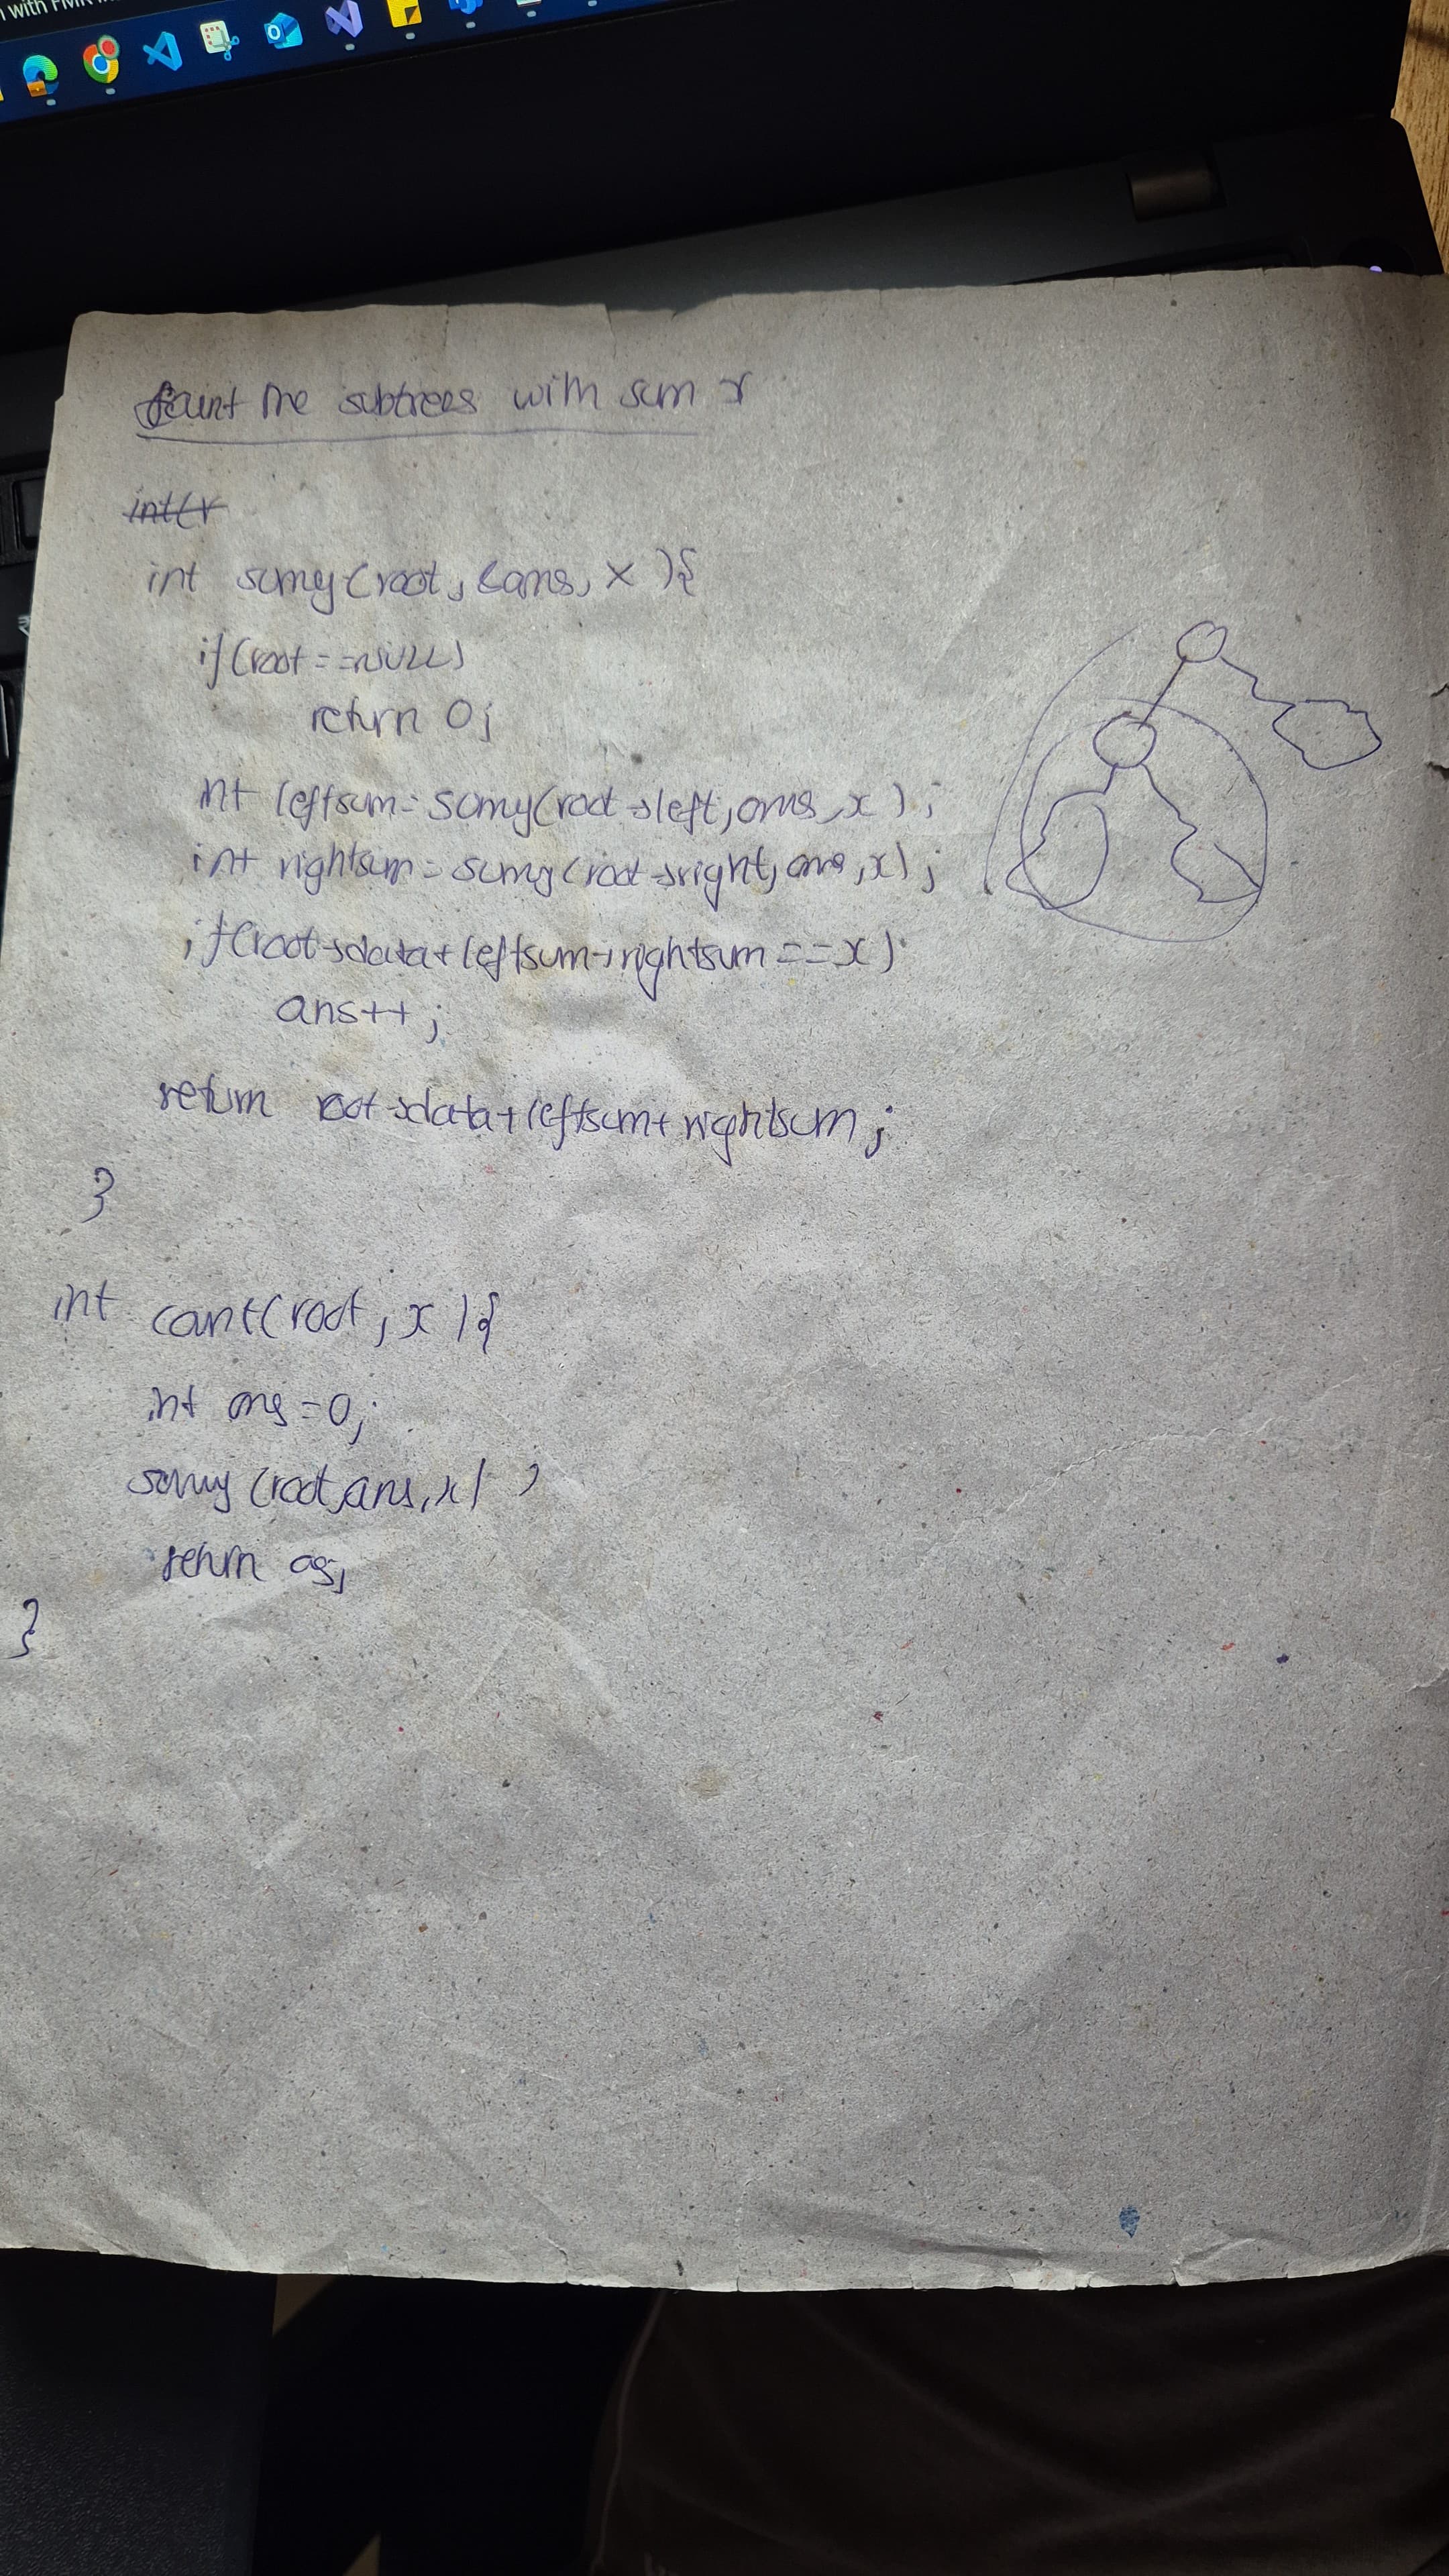 with FMR
Count the subtrees with sum x
int(r
int sumy(root, &ans, x){
if(root==NULL)
return 0;
int leftsum=sumy(root->left,ans,x);
int rightsum=sumy(root->right,ans,x);
if(root->data+leftsum+rightsum==x)
ans++;
return root->data+leftsum+rightsum;
}
int cont(root,x){
int ans=0;
sumy(root,ans,x)
return as;
}